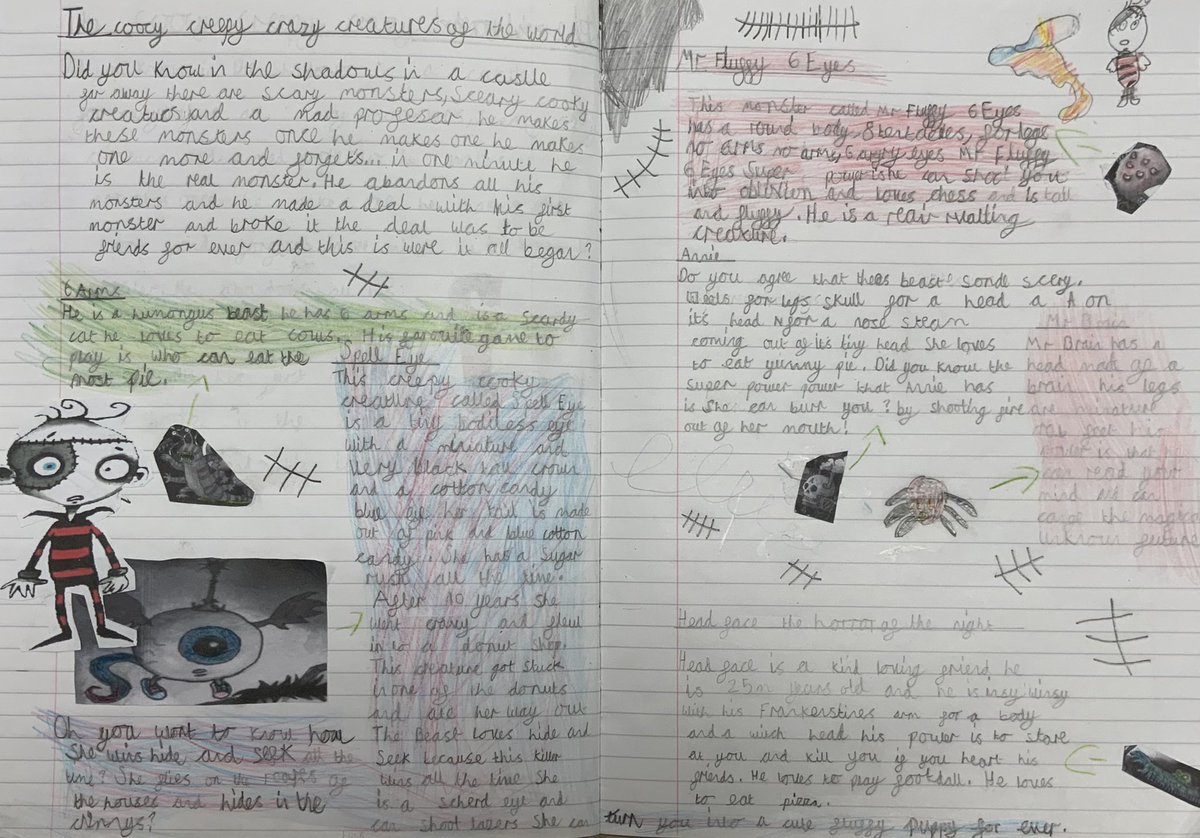 The coocy creepy crazy creatures of the world
Did you know in the shadows in a castle
far away there are scary monsters, Sceary cooky
creatuos and a mad profeser he makes
these monsters once he makes one he makes
one more and forgets... in one minute he
is the real monster. He abandons all his
monsters and he made a deal with his first
monster and broke it the deal was to be
friends for ever and this is were it all began?
6 Arms
He is a humongus beast he has 6 arms and is a scardy
cat he loves to eat cows. His favouite game to
play is who can eat the
most pie.
Spell Eye
This creepy cooky
creatture called Spell Eye
is a tiny bodiless eye
with a miniature and
very black crown
and a cotton candy
blue eye her tail is made
out of pink and blue cotton
candy. She has a sugar
rush all the time.
After 10 years she
went crazy and flew
in to a donut shop.
This creature got stuck
in one of the donuts
and ate her way out
The Beast loves hide and
Seek because this killer
wins all the time She
is a scherd eye and
can shoot lazers She can
turn you into a cute fluffy puppy for ever.
Oh you want to know how
She wins hide and seek all the
time? She flies on the of
the houses and hides in the
chimnys?
Mr Fluffy 6 Eyes
This monster called Mr Fluffy 6 Eyes
has a round body, 8 tentacles, for legs
no arms no arms, 6 angry eyes Mr Fluffy
6 Eyes Super power is he can shoot you
into oblivion and loves chess and is tall
and fluffy. He is a creature.
Annie
Do you agree that beast sonde scery.
Weels for legs skull for a head a A on
it's head N for a nose steam
coming out of it's tiny head She loves
to eat yummy pie. Did you know the
super power power that Annie has
is She can burn you? by shooting fire
out of her mouth!
Mr Brain
Mr Brain has a
head mad of a
brain his legs
are minature
his
power is that
can read your
mind can
the
unknown future
Head face the horror of the night
Head face is a kind loving friend he
is 25m years old and he is insy winsy
with his Frankenstines arm for a body
and a witch head his power is to stare
at you and kill you if you heart his
friends. He loves to play football. He loves
to eat pizza.